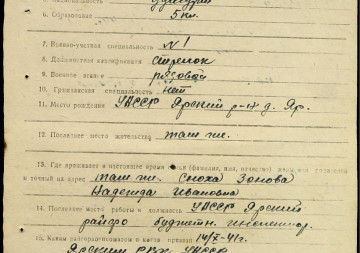 6. Образование 5 кл.
7. Военно-учетная специальность №1
8. Должностная квалификация стрелок
9. Военное звание рядовой
10. Гражданская специальность нет
11. Место рождения УАССР Ярский р-н д. Яр.
12. Последнее место жительства там же.
13. Где проживает в настоящее время (фамилия, имя, отчество)
и точный их адрес там же. Сноха Зонова
Надежда Ивановна
14. Последнее место работы и должность УАССР Ярский
райфо бюджетн. инспектор.
15. Каким райгорвоенкоматом и когда призван 14/X-41г.
Ярским РВК УАССР